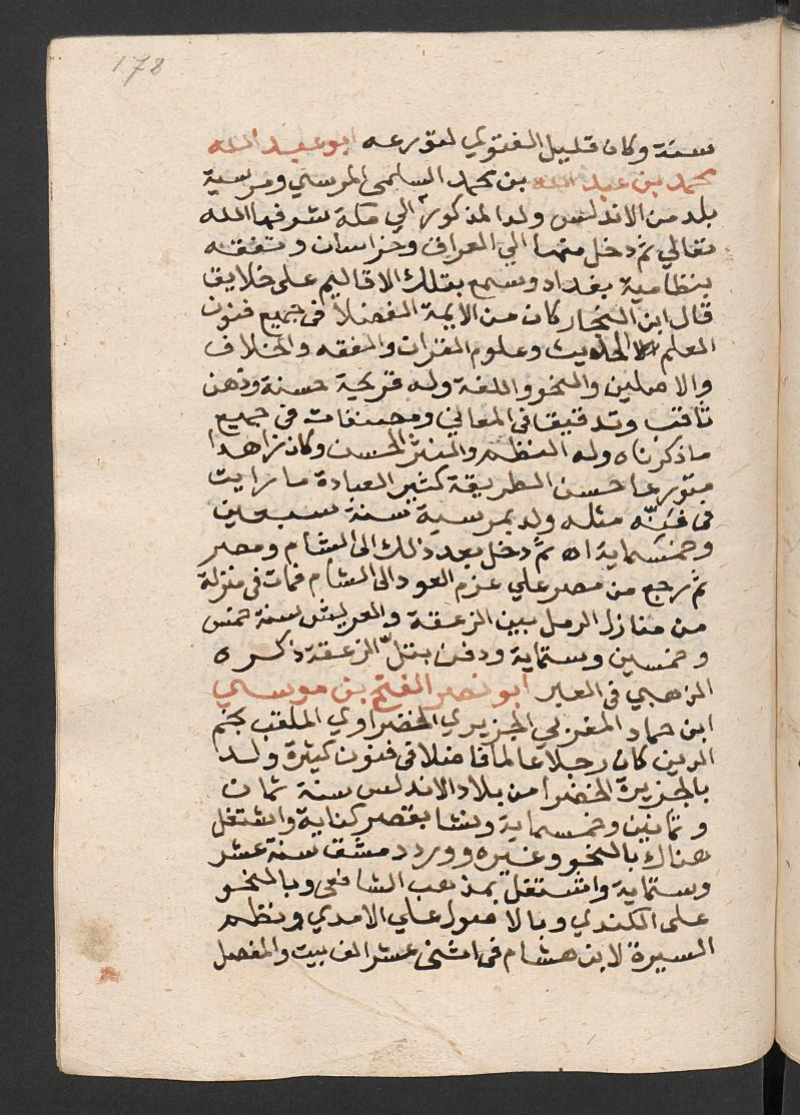 178
سنة وكان قليل الفتوي لتورعه ابو عبد الله
محمد بن عبد الله بن محمد السلمي المرسي ومرسية
بلد من الاندلس ولد المذكور الي مكة شرفها الله
تعالي ثم دخل منها الي العراق وخراسان وتفقه
بنظامية بغداد وسمع بتلك الاقاليم على خلايق
قال ابن النجار كان من الايمة الفضلا في جميع فنون
العلم الحديث وعلوم القران والفقه والخلاف
والاصلين والنحو واللغة وله قريحة حسنة وذهن
ثاقب وتدقيقا في المعاني ومصنفات في جميع
ما ذكرناه وله النظم والنثر الحسن وكان زاهدا
متورعا حسن الطريقة كثير العبادة ما رايت
في فنه مثله ولد بمرسية سنة سبعين
وخمسماية اه ثم دخل بعد ذلك الى الشام ومصر
ثم رجع من مصر علي عزم العود الى الشام فمات في منزلة
من منازل الرمل بين الزعقة والعريش سنة خمس
وخمسين وستماية ودفن بتل الزعقة ذكره
الذهبي في العبر ابو نصر الفتح بن موسي
ابن حماد المغربي الجزيري الخضراوي الملقب نجم
الدين كان رجلا عالما فاضلا في فنون كثيرة ولد
بالجزيرة الخضرا من بلاد الاندلس سنة ثمان
وثمانين وخمسماية ونشا بقصر كتاية واشتغل
هناك بالنحو وغيره وورد دمشق سنة عشر
وستماية واشتغل بمذهب الشافعي وبالنحو
على الكندي وبالاصول علي الامدي ونظم
السيرة لابن هشام في اثني عشر الف بيت والمفصل